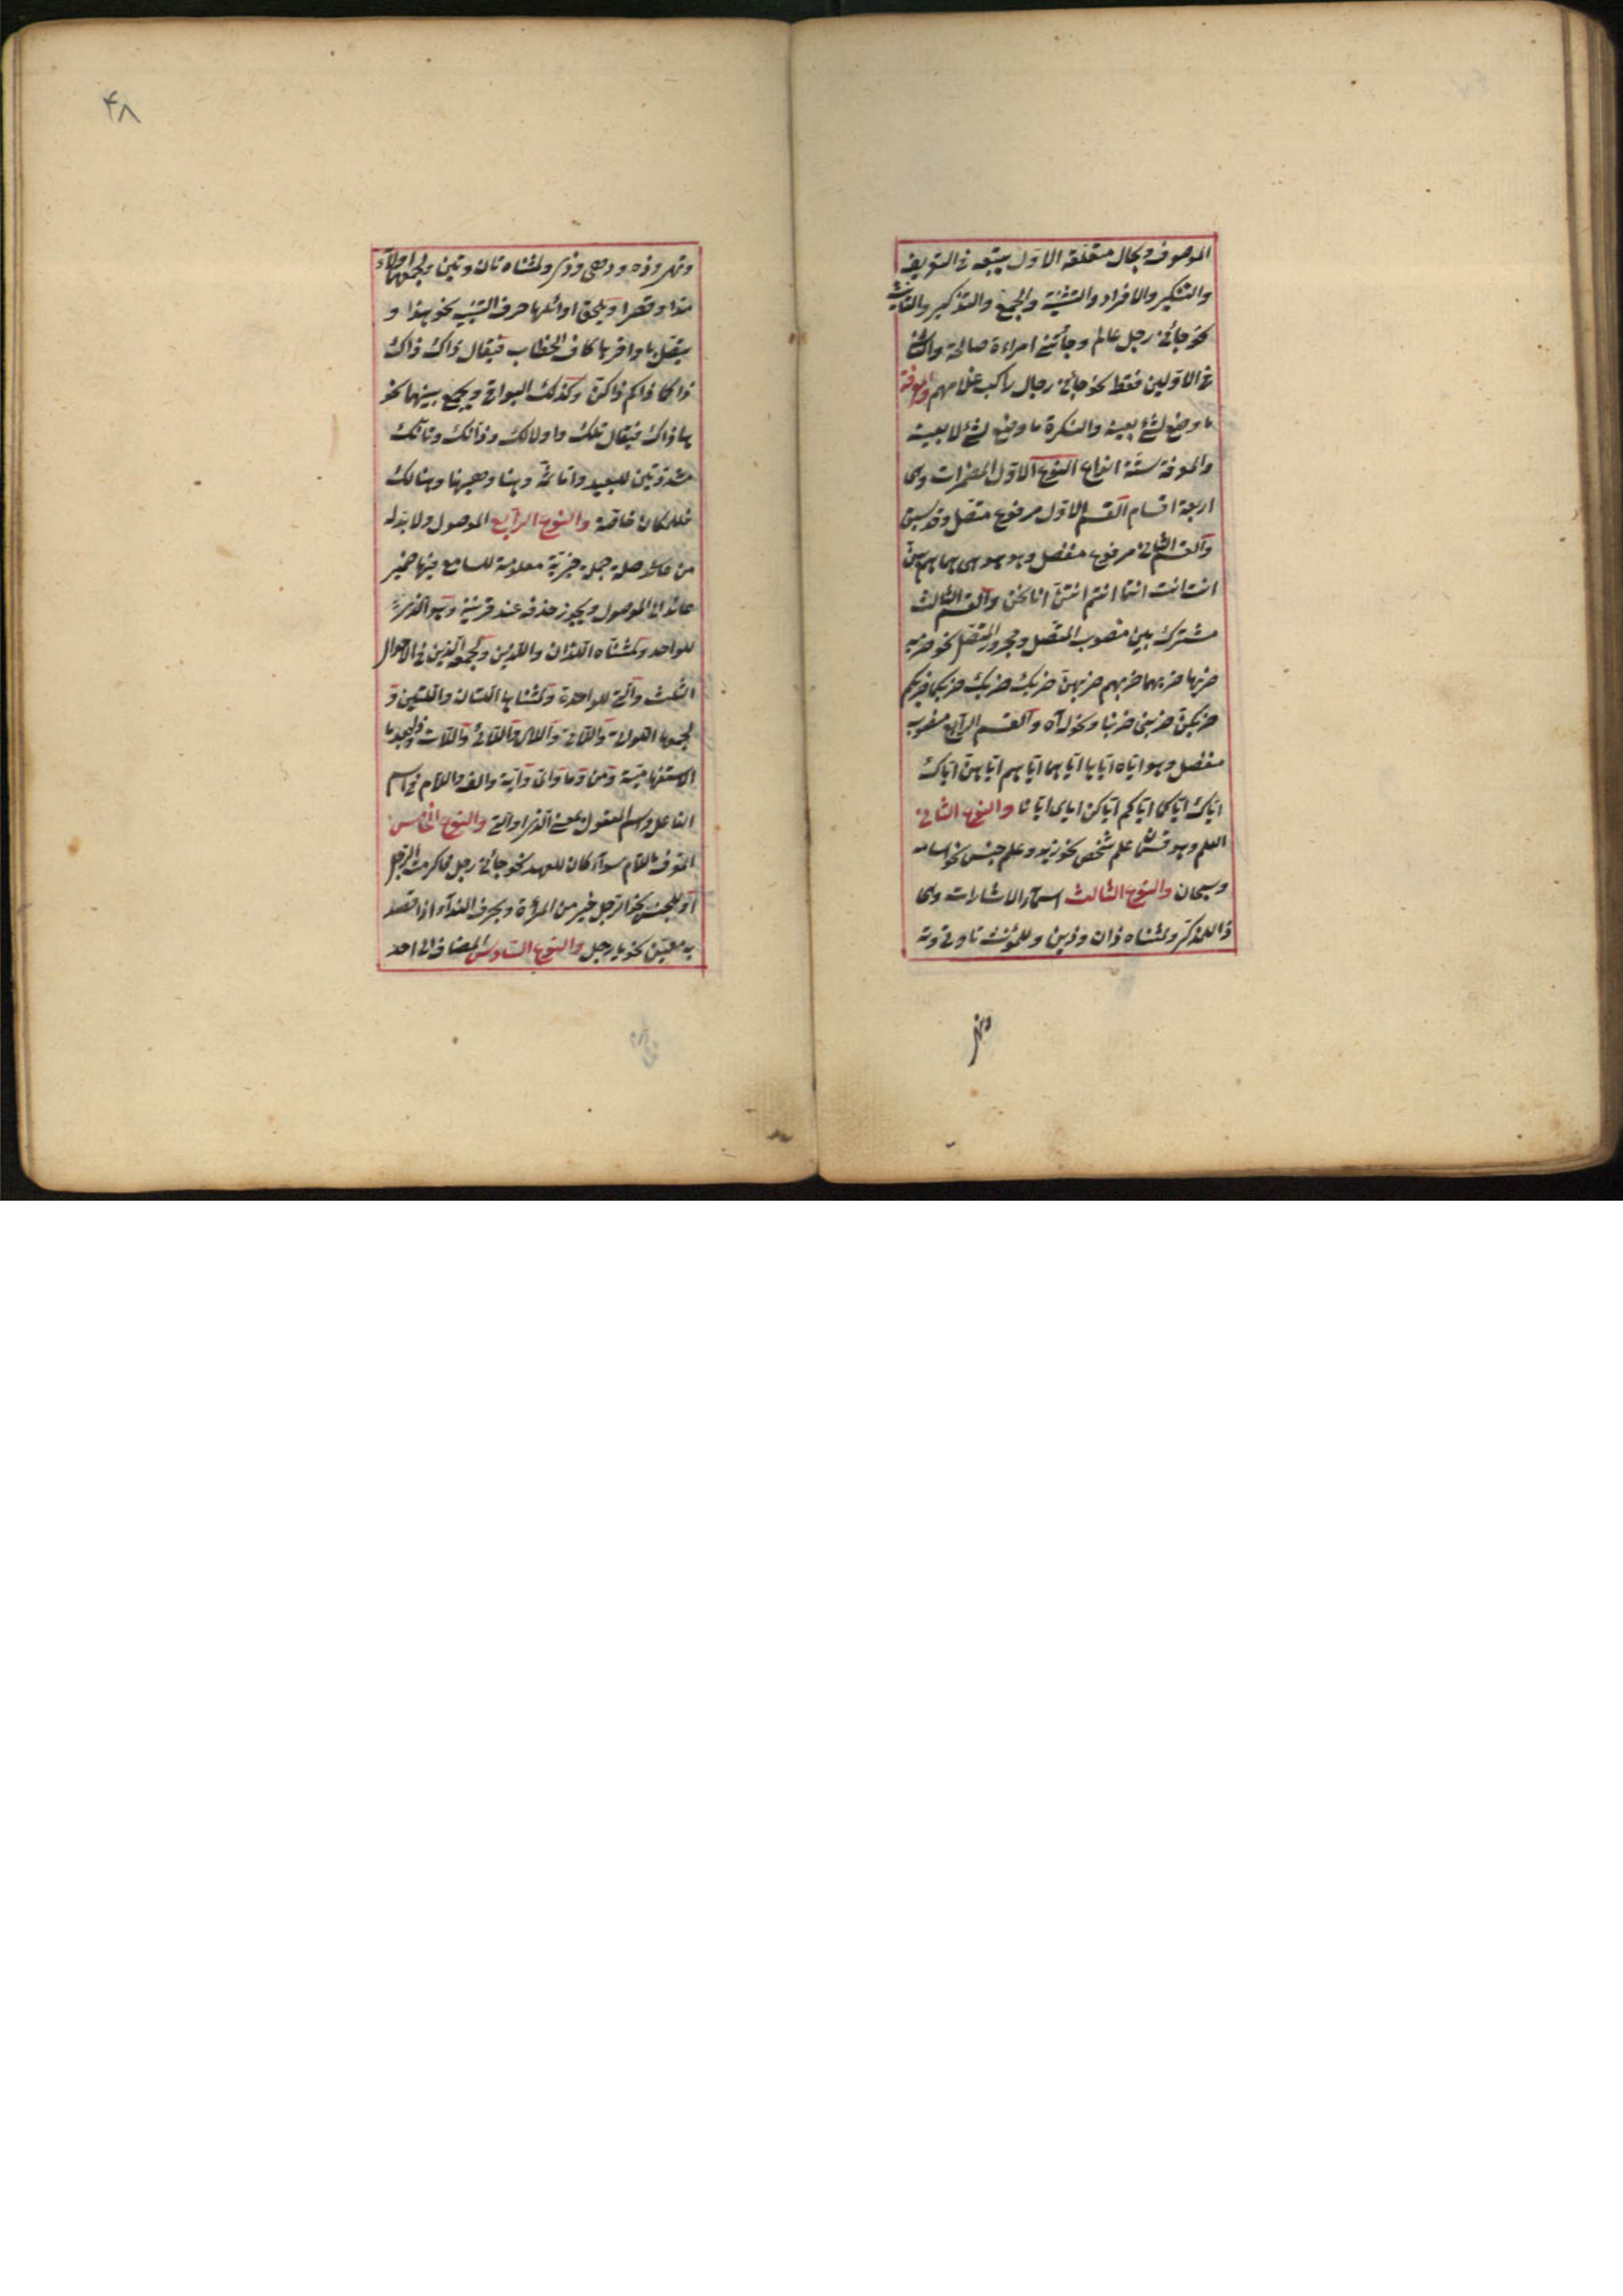 الموصوف وبحال متعلقه الاول يتبعه فى التعريف
والتنكير والافراد والتثنية والجمع والتذكير والتانيث
نحو جائنى رجل عالم وجائتنى امراءة صالحة والثانى
فى الاولين فقط نحو جائنى رجال راكب غلامهم والمعرفة
ما وضع لشئ بعينه والنكرة ما وضع لشئ لا بعينه
والمعرفة ستة انواع النوع الاول المضمرات وهى
اربعة اقسام القسم الاول مرفوع متصل وقد سبق
والقسم الثانى مرفوع منفصل وهو هو هى هما هم هن
انت انت انتما انتم انتن انا نحن والقسم الثالث
مشترك بين منصوب المتصل ومجرور المتصل نحو ضربه
ضربها ضربهما ضربهم ضربهن ضربك ضربك ضربكما ضربكم
ضربكن ضربنى ضربنا ونحو له آه والقسم الرابع منصوب
منفصل وهو اياه اياها اياهما اياهم اياهن اياك
اياك اياكما اياكم اياكن اياى ايانا والنوع الثانى
العلم وهو قسمان علم شخص نحو زيد وعلم جنس نحو اسامه
وسبحان والنوع الثالث اسمآء الاشارات وهى
ذا للمذكر ولمثناه ذان وذين وللمؤنث تا وتى وته
وتهى
٤٨
وتهى وذه وذهى وذى ولمثناه تان وتين ولجمعهما اولآء
مدا وقصرا ويلحق اوائلها حرف التنبيه نحو هذا و
يتصل باواخرها كاف الخطاب فيقال ذاك ذاك
ذاكما ذاكم ذاكن وكذلك البواقى ويجمع بينهما نحو
هاذاك فيقال تلك واولالك وذانك وتانك
مشددتين للبعيد واما ثمه وهنا وههنا وهنالك
فللمكان خاصة والنوع الرابع الموصول ولا بد له
من صلة جملة خبرية معلومة للسامع فيها ضمير
عائد الى الموصول ويجوز حذفه عند قرينة وهو الذى
للواحد ومثناه اللذان واللذين ولجمعه الذين فى الاحوال
الثلث والتى للواحدة ولمثناها اللتان واللتين و
لجمعها اللواتى واللاتى واللاى واللائى واللات
الاستفهامية ومن وما واى واية والف واللام فى اسم
الفاعل واسم المفعول بمعنى الذى او التى والنوع الخامس
المعرف باللام سواء كان للعهد نحو جائنى رجل فاكرمت الرجل
او للجنس نحو الرجل خير من المرءة وبحرف الندآء اذا قصد
به معين نحو يا رجل والنوع السادس المضاف الى احد